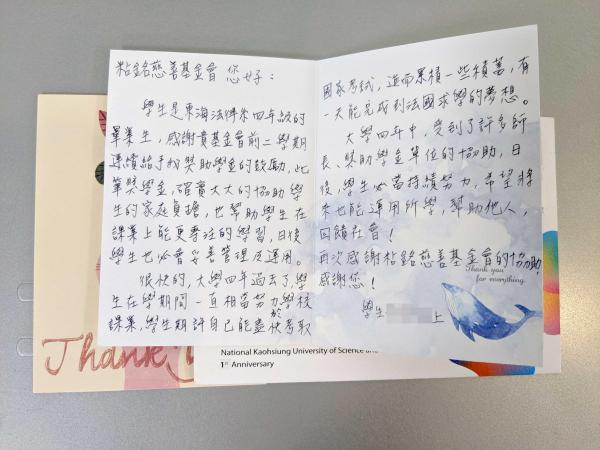 粘銘慈善基金會 您好：
學生是東海法律系四年級的
畢業生，感謝貴基金會前二學期
連續給予我獎助學金的鼓勵，此
筆獎學金，確實大大的協助學
生的家庭負擔，也幫助學生在
課業上能更專注的學習，日後
學生也必會妥善管理及運用。
很快的，大學四年過去了，學
生在學期間一直相當努力於學校
課業，學生期許自己能盡快考取
國家考試，進而累積一些積蓄，有
一天能完成到法國求學的夢想。
大學四年中，受到了許多師
長、獎助學金單位的協助，日
後，學生必當持續努力，希望將
來也能運用所學，幫助他人，
回饋社會！
再次感謝粘銘慈善基金會的協助！
感謝您！
Thank you
for everything.
學生 上
Thank
National Kaohsiung University of Science and
1st Anniversary